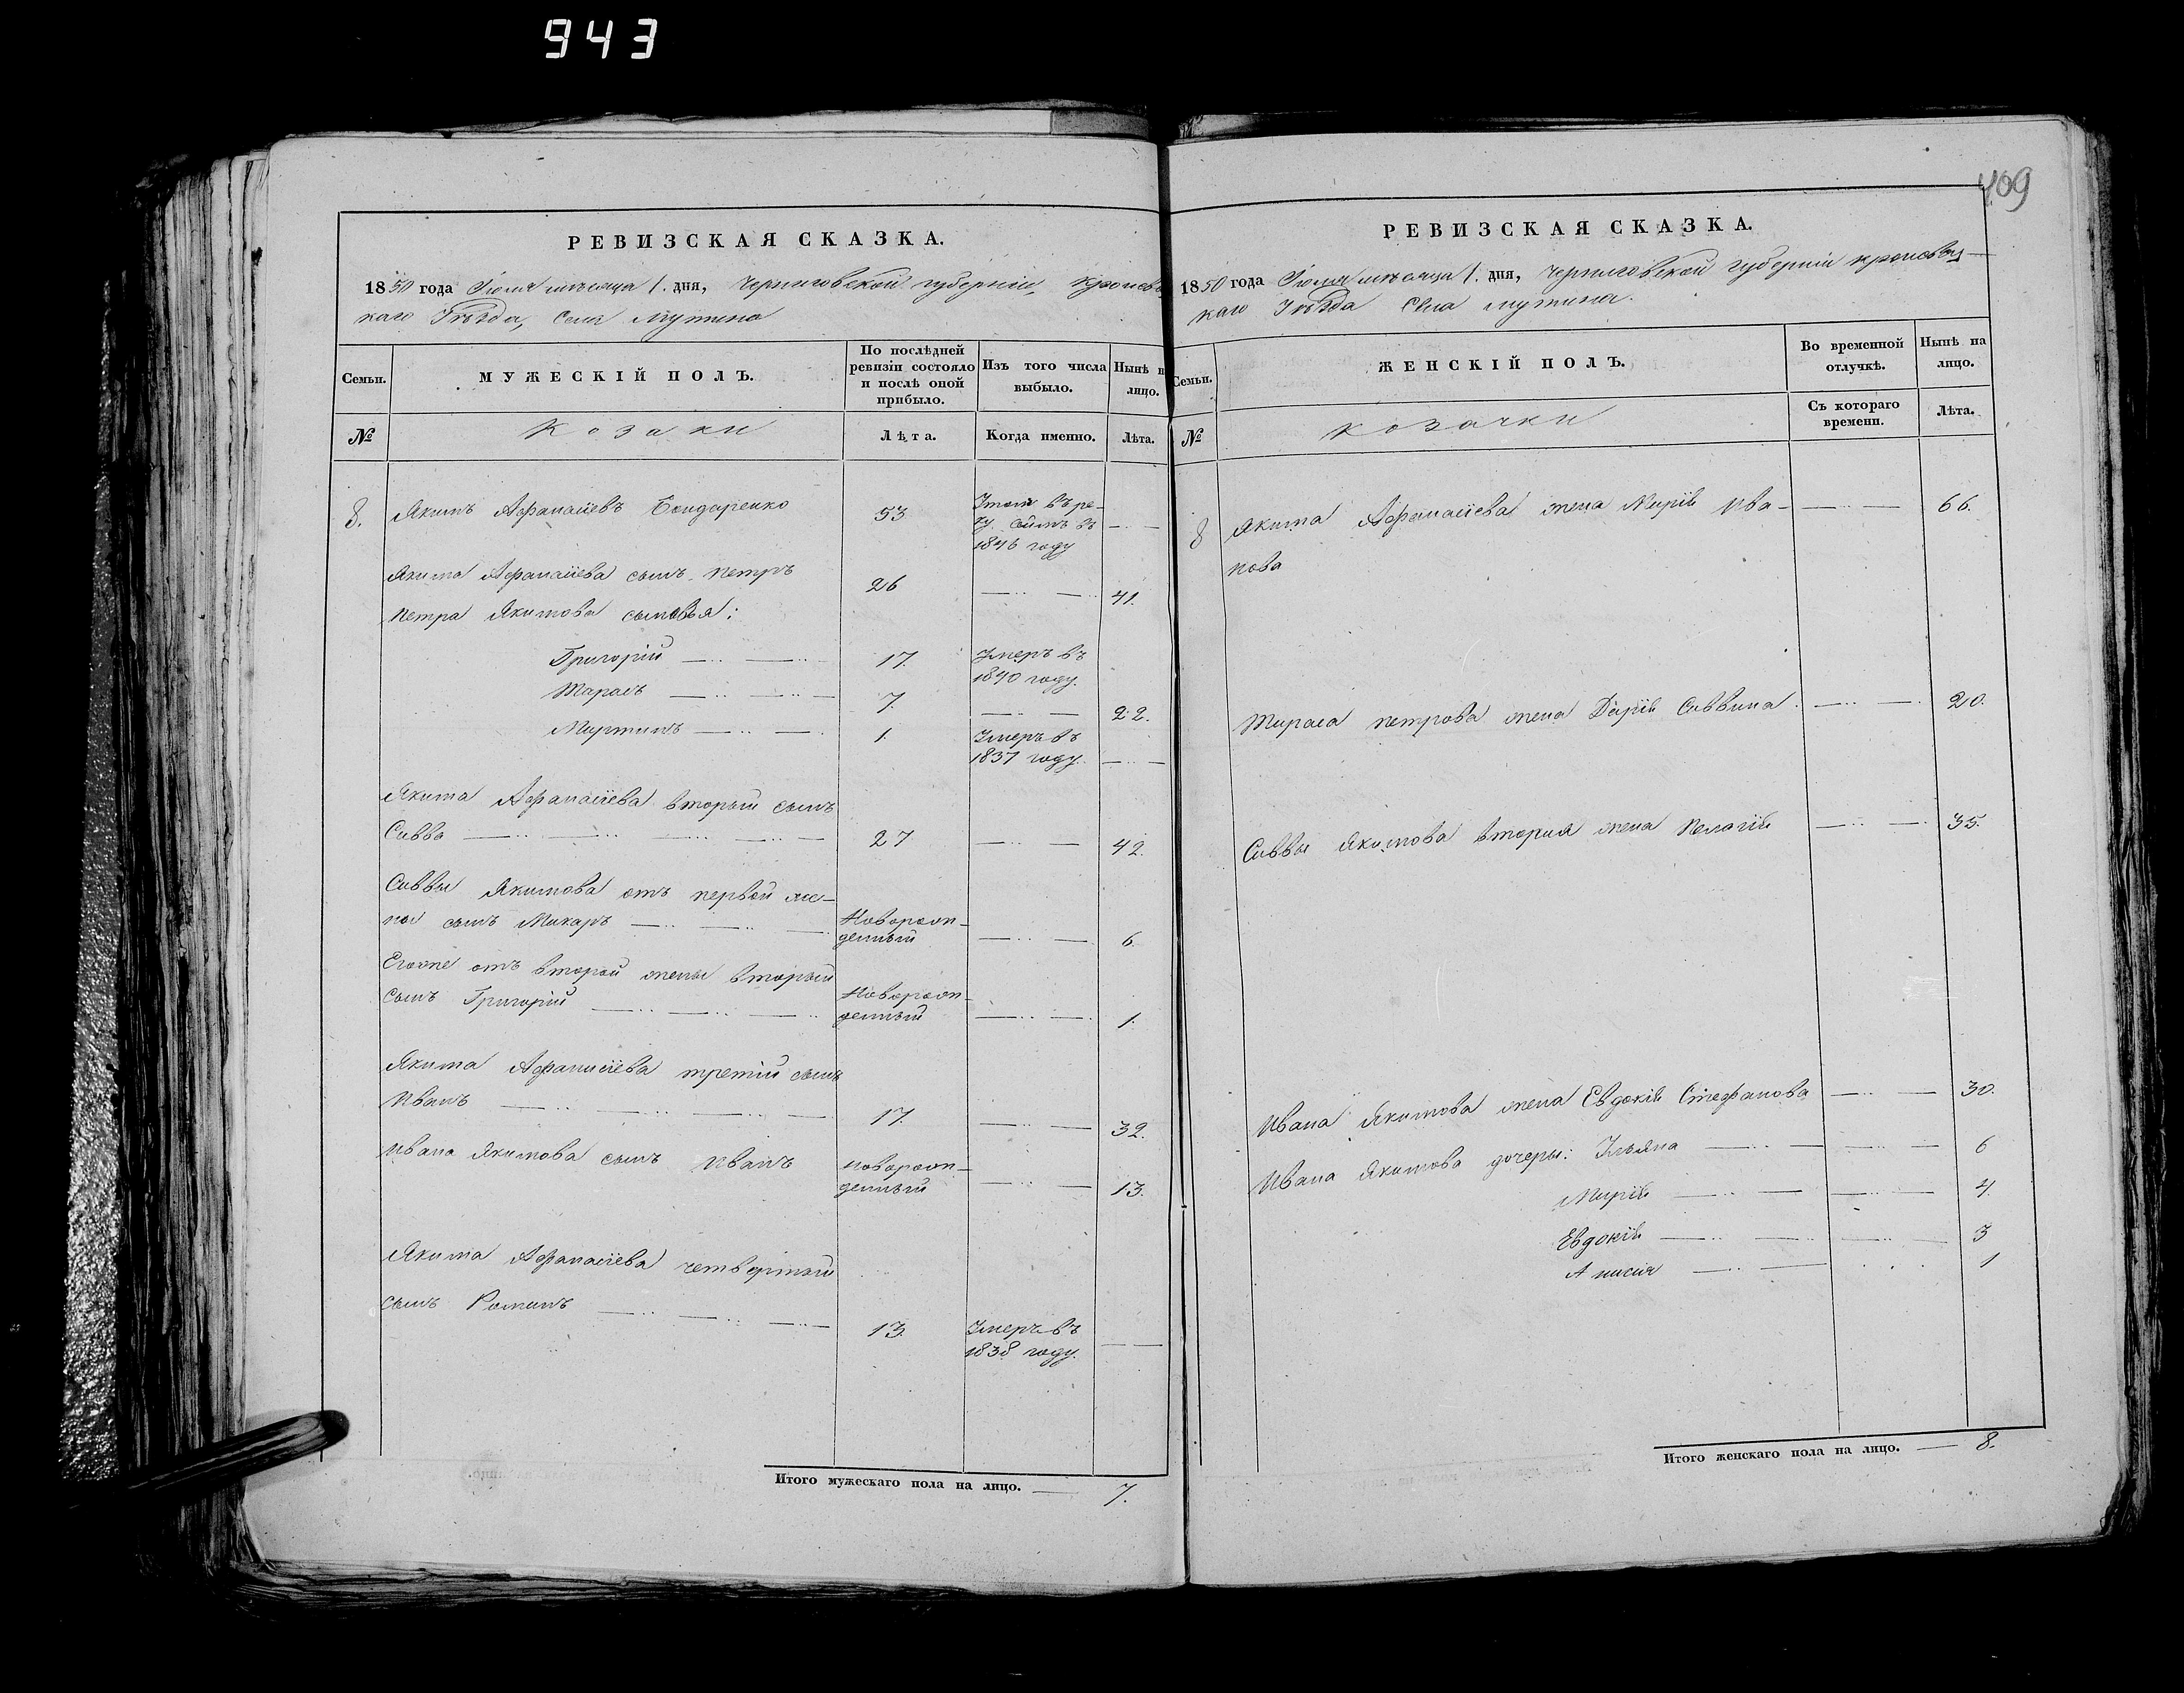 943
409
РЕВИЗСКАЯ СКАЗКА.
1850 года Іюля мѣсяца 1. дня, Черниговской губерніи, Кролевец
каго Уѣзда, Села Мутина
Семьи.
МУЖЕСКІЙ ПОЛЪ.
По послѣдней ревизіи состояло и послѣ оной прибыло.
Изъ того числа выбыло.
Нынѣ на лицо.
№
Козаки
Лѣта.
Когда именно.
Лѣта.
8. Якимъ Афанасіевъ Бондаренко 53
въ ре-
1846 году
Якима Афанасіева сынъ Петръ 26 41.
Петра Якимова сыновья:
Григорій 17. Умеръ въ
1840 году.
Тарасъ 7. 22.
Мартинъ 1. Умеръ въ
1837 году.
Якима Афанасіева вторый сынъ
Савва 27 42.
Саввы Якимова отъ первой же-
ны сынъ Макаръ Новорож-
денный 6.
Егоже отъ второй жены вторый
сынъ Григорій Новорож-
денный 1.
Якима Афанасіева третій сынъ
Иванъ 17. 32.
Ивана Якимова сынъ Иванъ новорож-
денный 13.
Якима Афанасіева четвертый
сынъ Романъ 13. Умеръ въ
1838 году.
Итого мужескаго пола на лицо. 7.
РЕВИЗСКАЯ СКАЗКА.
1850 года Іюля мѣсяца 1. дня, Черниговской губерніи Кролевец
каго Уѣзда Села Мутина.
Семьи.
ЖЕНСКІЙ ПОЛЪ.
Во временной отлучкѣ.
Нынѣ на лицо.
№
козачки
Съ котораго времени.
Лѣта.
8 Якима Афанасіева жена Марія Ива- 66.
нова
Тараса Петрова жена Дарія Саввина 20.
Саввы Якимова вторая жена Пелагія 35.
Ивана Якимова жена Евдокія Стефанова 30.
Ивана Якимова дочеры: Ульяна 6
Марія 4.
Евдокія 3
Анисія 1
Итого женскаго пола на лицо. 8.